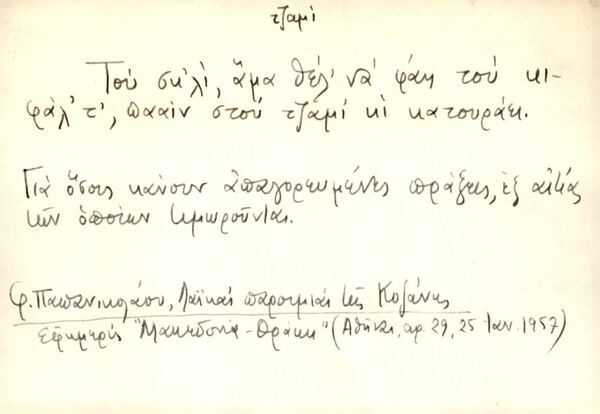 τζαμί
Τοὺ σκ'λὶ, ἅμα θέλ' νὰ φάῃ τοὺ κι-
φάλ' τ', πααίν στοὺ τζαμί κὶ κατουράει.
Γιὰ ὅσους κάνουν ἀπαγορευμένες πράξεις, ἐξ αἰτίας
τῶν ὁποίων τιμωροῦνται.
Φ. Παπανικολάου, Λαϊκαὶ παροιμίαι τῆς Κοζάνης
Ἐφημερὶς "Μακεδονία-Θράκη" (Ἀθῆναι, αρ. 29, 25 Ιαν. 1957)